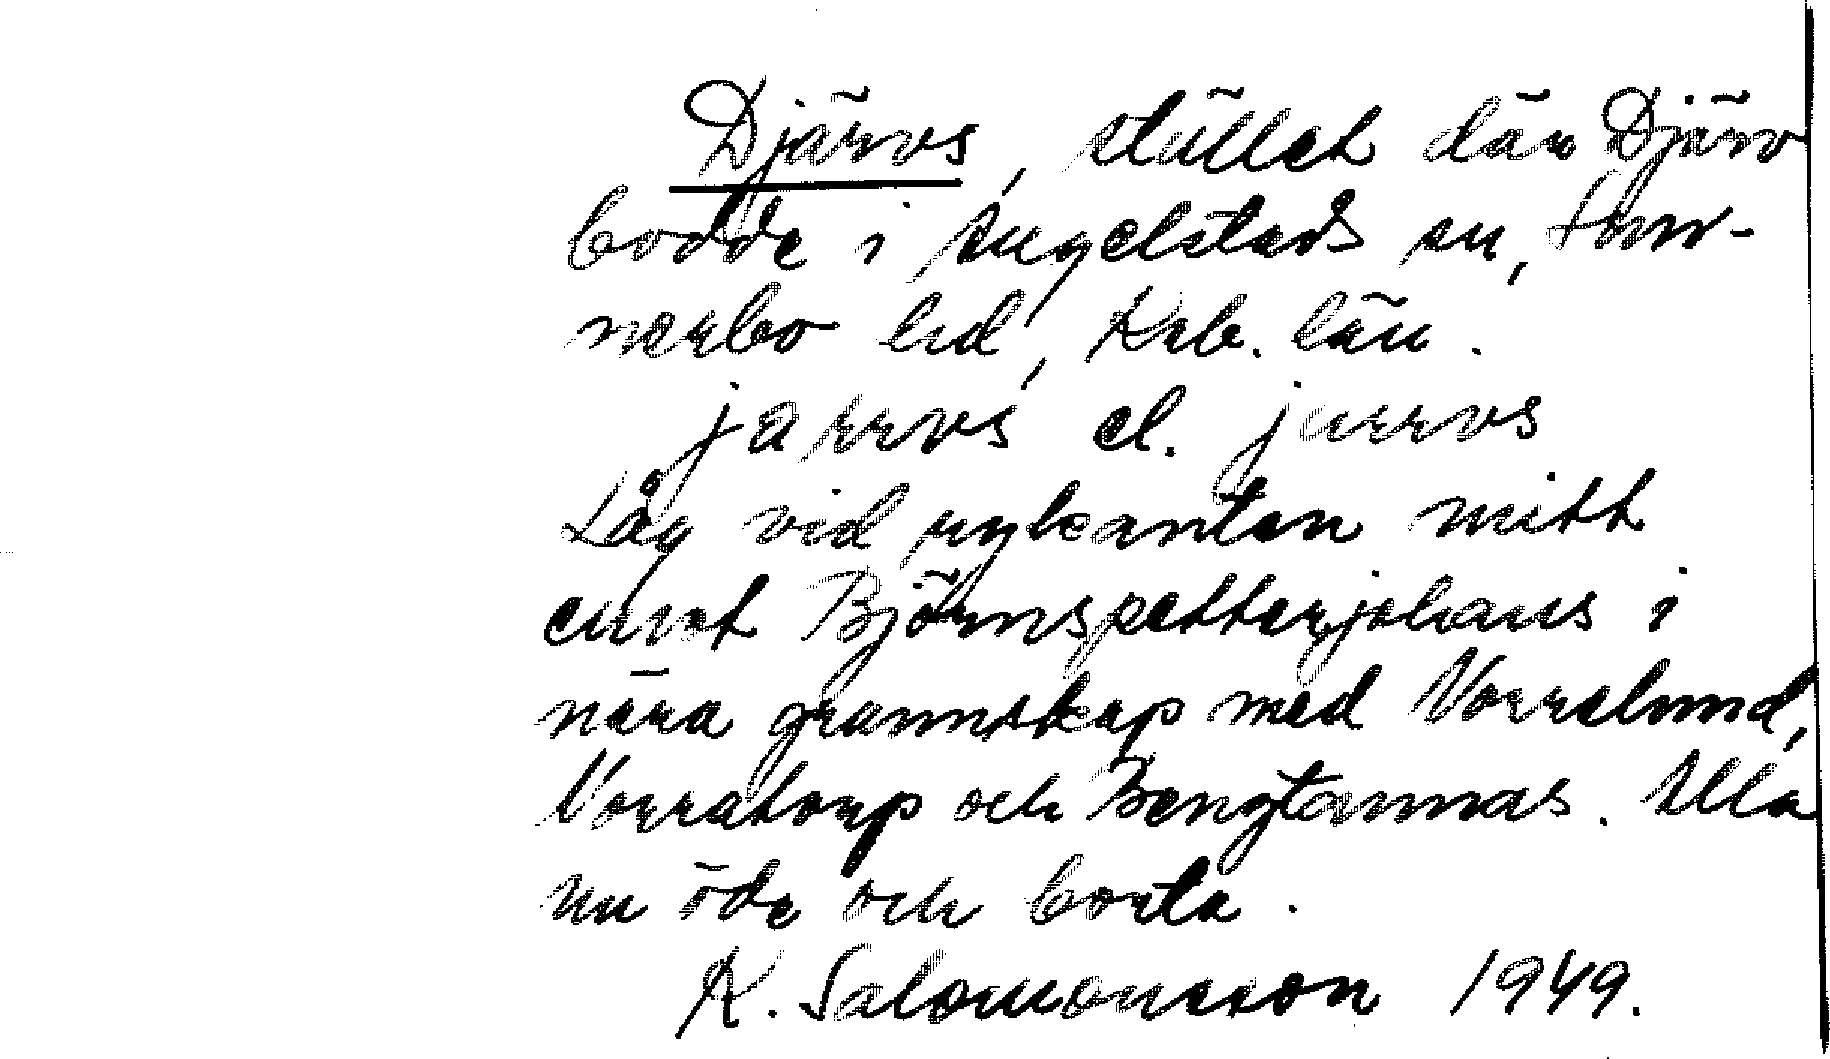 Djärvs, stället där Djärv
bodde i Angelstads sn, Sun-
nerbo hd, Krb. län.
jarrvs el. jurrvs
Låg vid rykanten mitt
emot Björnspetterjohans i
nära grannskap med Norrelund,
Norratorp och Bengtannas. Alla
nu öde och borta.
K. Salomonsson 1949.